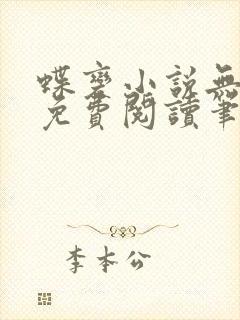 蝶變小說無
免費閱讀筆
李本公